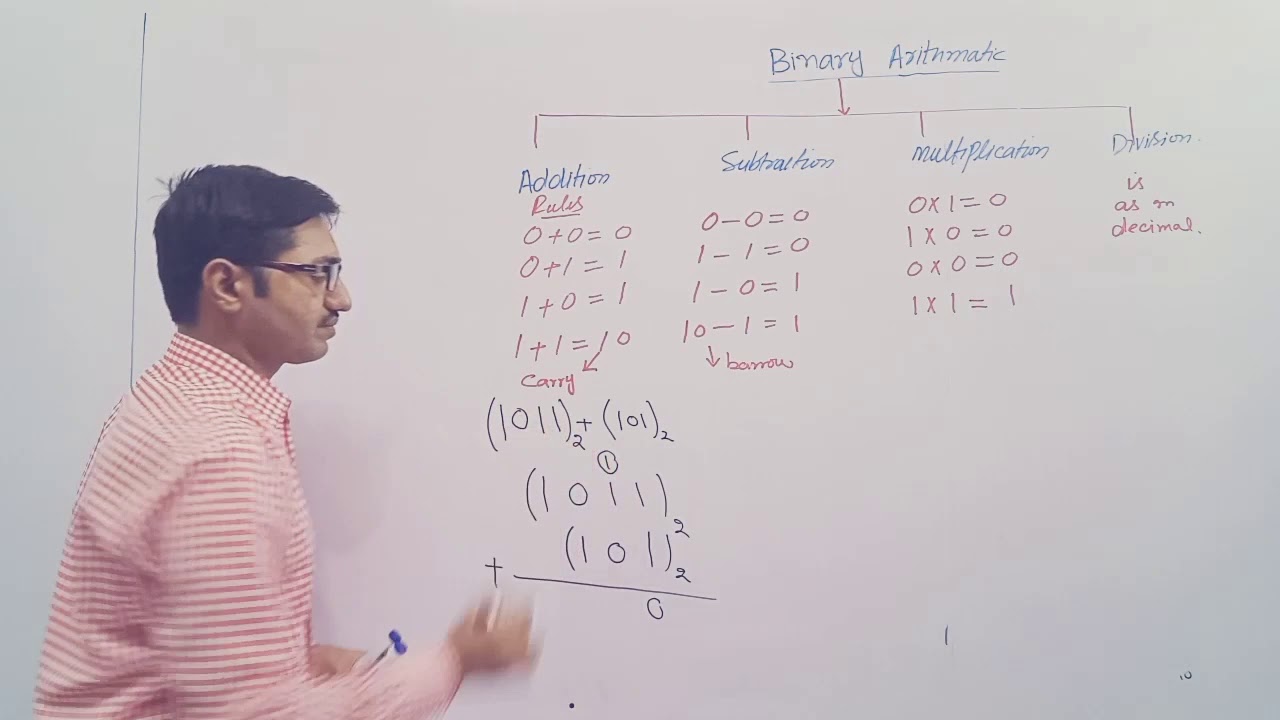 Binary Arithmatic
Addition
Rules
0+0=0
0+1=1
1+0=1
1+1=10
Carry
Subtraction
0-0=0
1-1=0
1-0=1
10-1=1
barrow
Multiplication
0x1=0
1x0=0
0x0=0
1x1=1
Division.
is
as in
decimal.
(1011)₂+(101)₂
1
(1011)₂
+ (101)₂
0
1
10